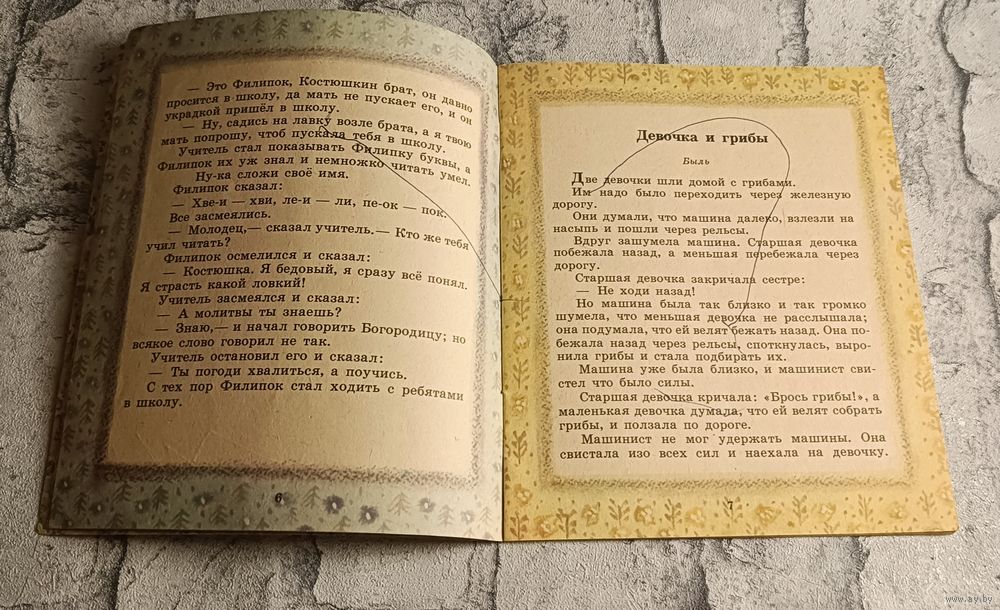 — Это Филипок, Костюшкин брат, он давно
просится в школу, да мать не пускает его, и он
украдкой пришёл в школу.
— Ну, садись на лавку возле брата, а я твою
мать попрошу, чтоб пускала тебя в школу.
Учитель стал показывать Филипку буквы, а
Филипок их уж знал и немножко читать умел.
Ну-ка сложи своё имя.
Филипок сказал:
— Хве-и — хви, ле-и — ли, пе-ок — пок.
Все засмеялись.
— Молодец,— сказал учитель.— Кто же тебя
учил читать?
Филипок осмелился и сказал:
— Костюшка. Я бедовый, я сразу всё понял.
Я страсть какой ловкий!
Учитель засмеялся и сказал:
— А молитвы ты знаешь?
— Знаю,— и начал говорить Богородицу; но
всякое слово говорил не так.
Учитель остановил его и сказал:
— Ты погоди хвалиться, а поучись.
С тех пор Филипок стал ходить с ребятами
в школу.
6
Девочка и грибы
Быль
Две девочки шли домой с грибами.
Им надо было переходить через железную
дорогу.
Они думали, что машина далеко, взлезли на
насыпь и пошли через рельсы.
Вдруг зашумела машина. Старшая девочка
побежала назад, а меньшая перебежала через
дорогу.
Старшая девочка закричала сестре:
— Не ходи назад!
Но машина была так близко и так громко
шумела, что меньшая девочка не расслышала;
она подумала, что ей велят бежать назад. Она по-
бежала назад через рельсы, споткнулась, выро-
нила грибы и стала подбирать их.
Машина уже была близко, и машинист сви-
стел что было силы.
Старшая девочка кричала: «Брось грибы!», а
маленькая девочка думала, что ей велят собрать
грибы, и ползала по дороге.
Машинист не мог удержать машины. Она
свистала изо всех сил и наехала на девочку.
7
www.ay.by